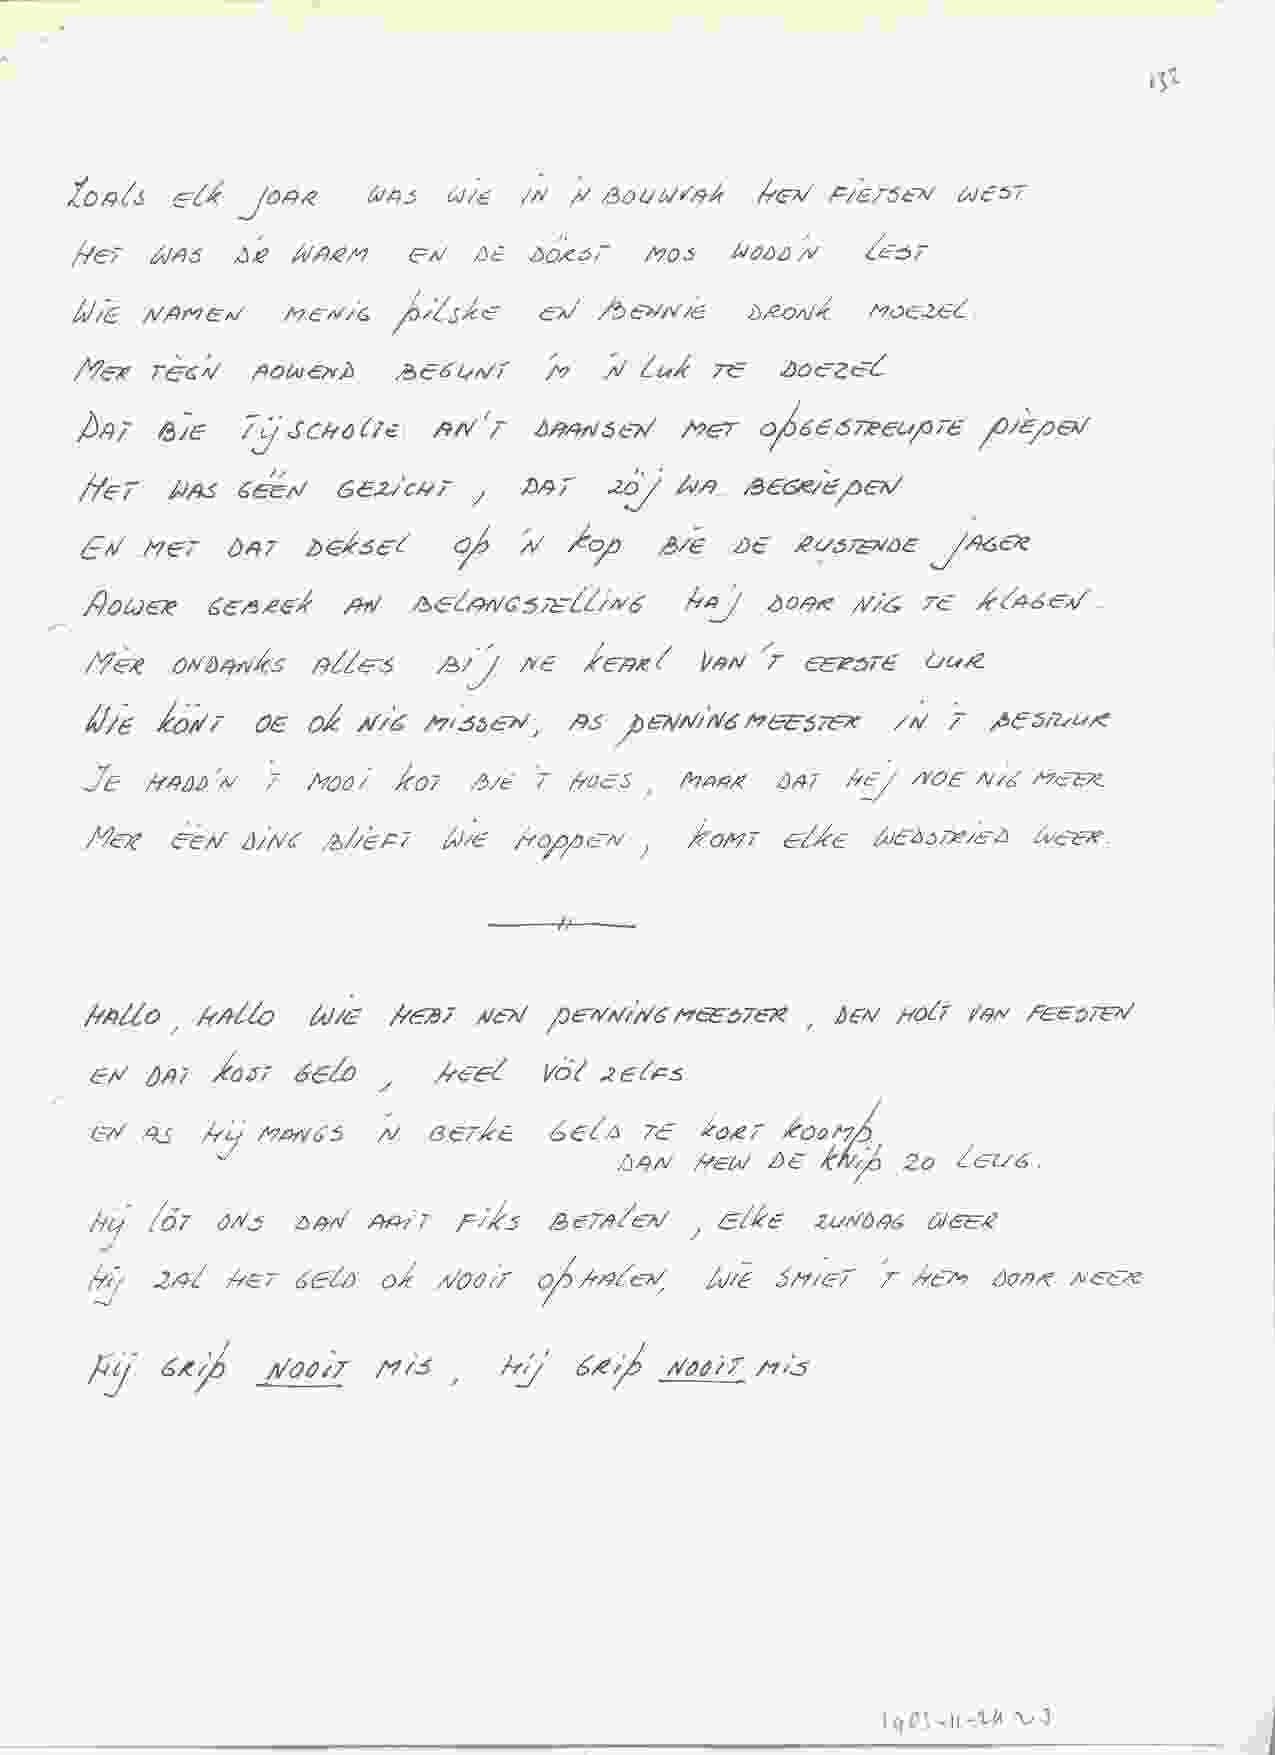 132
Zoals elk joar was wie in 'n bouwvak hen fietsen west
Het was d'r warm en de dörst mos wodd'n lest
Wie namen menig pilske en Bennie dronk moezel.
Mer tèg'n aowend begunt 'm 'n luk te doezel
Dat bie Tijscholte an't daansen met opgestreupte piepen
Het was géén gezicht, dat zö'j wa begriepen
En met dat deksel op 'n kop bie de rustende jager
Aower gebrek an belangstelling ha'j doar nig te klagen.
Mèr ondanks alles bi'j ne kearl van 't eerste uur
Wie könt oe ok nig missen, as penningmeester in 't bestuur
Je hadd'n 't mooi kot bie 't hoes, maar dat he'j noe nig meer
Mer één ding blieft wie hoppen, komt elke wedstried weer.
Hallo, hallo wie hebt nen penningmeester, den holt van feesten
en dat kost geld, heel völ zelfs
en as hij mangs 'n betke geld te kort koomp
dan hew de knip zo leug.
Hij löt ons dan aait fiks betalen, elke zundag weer
Hij zal het geld ok nooit ophalen, wie smiet 't hem doar neer
Hij grip nooit mis, hij grip nooit mis